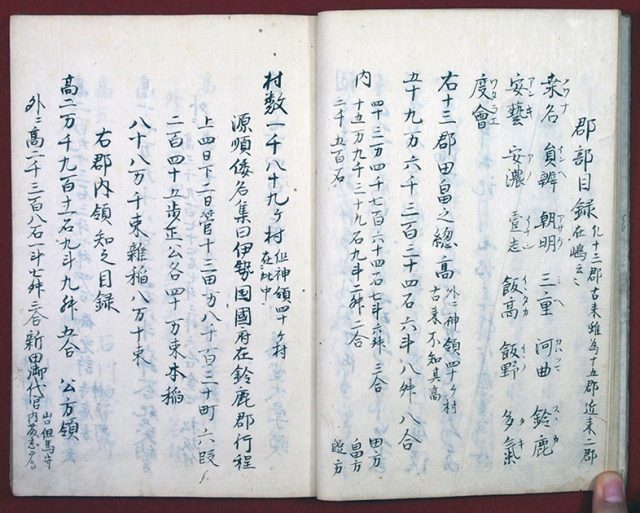 郡部目録 凡十三郡古来雖為十五郡近来二郡在嶋云々
桑名 員辨 朝明 三重 河曲 鈴鹿
安藝 安濃 壹志 飯高 飯野 多氣
度會
右十三郡田畠之総高 外ニ神領四十ヶ村古来不知其高
五十九万六千三百三十四石六斗八舛八合
内
四十三万四千七百六十四石七斗六舛三合 田方
十五万九千三十九石九斗二舛二合 畠方
二千五百石 
村数一千八十九ヶ村 但神領四十ヶ村在此中
源順倭名集曰伊勢国國府在鈴鹿郡行程
上四日下二日管十三田万八千百三十町六段
二百四十五歩正公各四十万束本稲
八十八万千束雜稲八万十束
右郡内領知之目録
高二万千九百十一石九斗九舛五合 公方領
外ニ高二千三百八石一斗七舛三合新田御代官